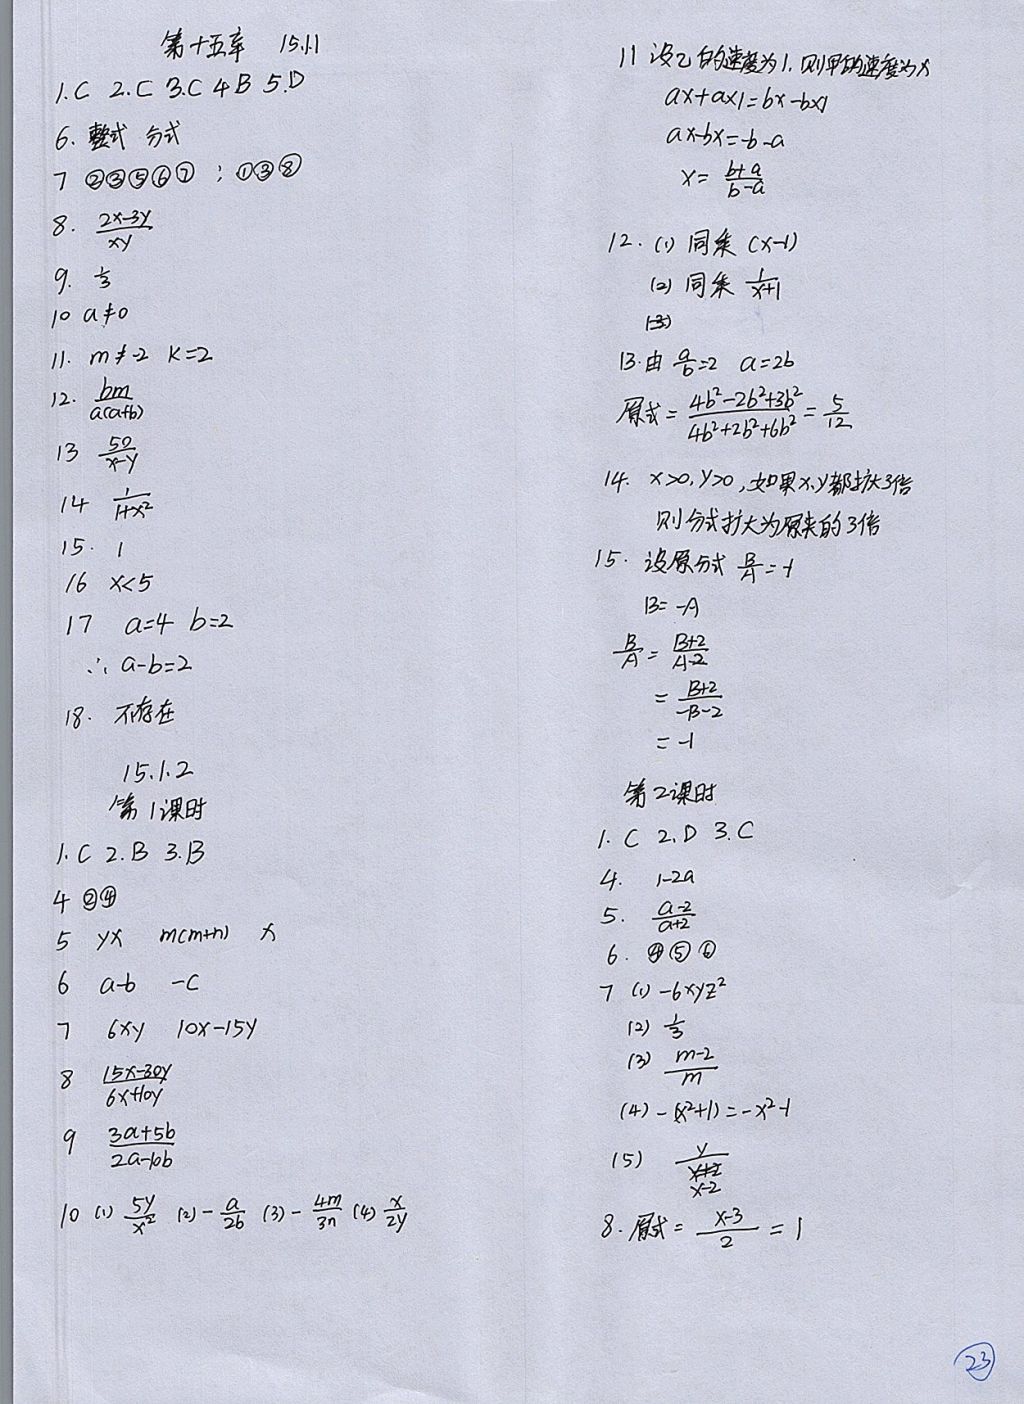 第十五章 15.1.1
1.C 2.C 3.C 4.B 5.D
6. 整式 分式
7 ②③⑤⑥⑦ ; ①③⑧
8. (2x-3y)/(xy)
9. 1/3
10 a≠0
11. m≠-2 K=2
12. bm/(a(a+b))
13 50/(x-y)
14 1/(1+x²)
15. 1
16 x<5
17 a=4 b=2
∴ a-b=2
18. 不存在
15.1.2
第1课时
1.C 2.B 3.B
4 ②④
5 yx m(m+n) x
6 a-b -c
7 6xy 10x-15y
8 (15x-30y)/(6x+10y)
9 (3a+5b)/(2a-10b)
10 (1) 5y/x² (2) -a/2b (3) -4m/3n (4) x/2y
11 设乙的速度为1.则甲的速度为x
ax+ax1=bx-bx1
ax-bx=-b-a
x=(b+a)/(b-a)
12. (1) 同乘 (x-1)
(2) 同乘 1/(x+1)
13.由 a/b=2 a=2b
原式=(4b²-2b²+3b²)/(4b²+2b²+6b²)=5/12
14. x>0,y>0,如果x,y都扩大3倍
则分式扩大为原来的3倍
15. 设原分式 B/A=-1
B=-A
B/A=(B+2)/(A-2)
=(B+2)/(-B-2)
=-1
第2课时
1. C 2.D 3.C
4. 1-2a
5. (a-2)/(a+2)
6. ④⑤⑥
7 (1) -6xyz²
(2) 1/3
(3) (m-2)/m
(4) -(x²+1)=-x²-1
(5) y/(x-2)
8. 原式=(x-3)/2=1
23